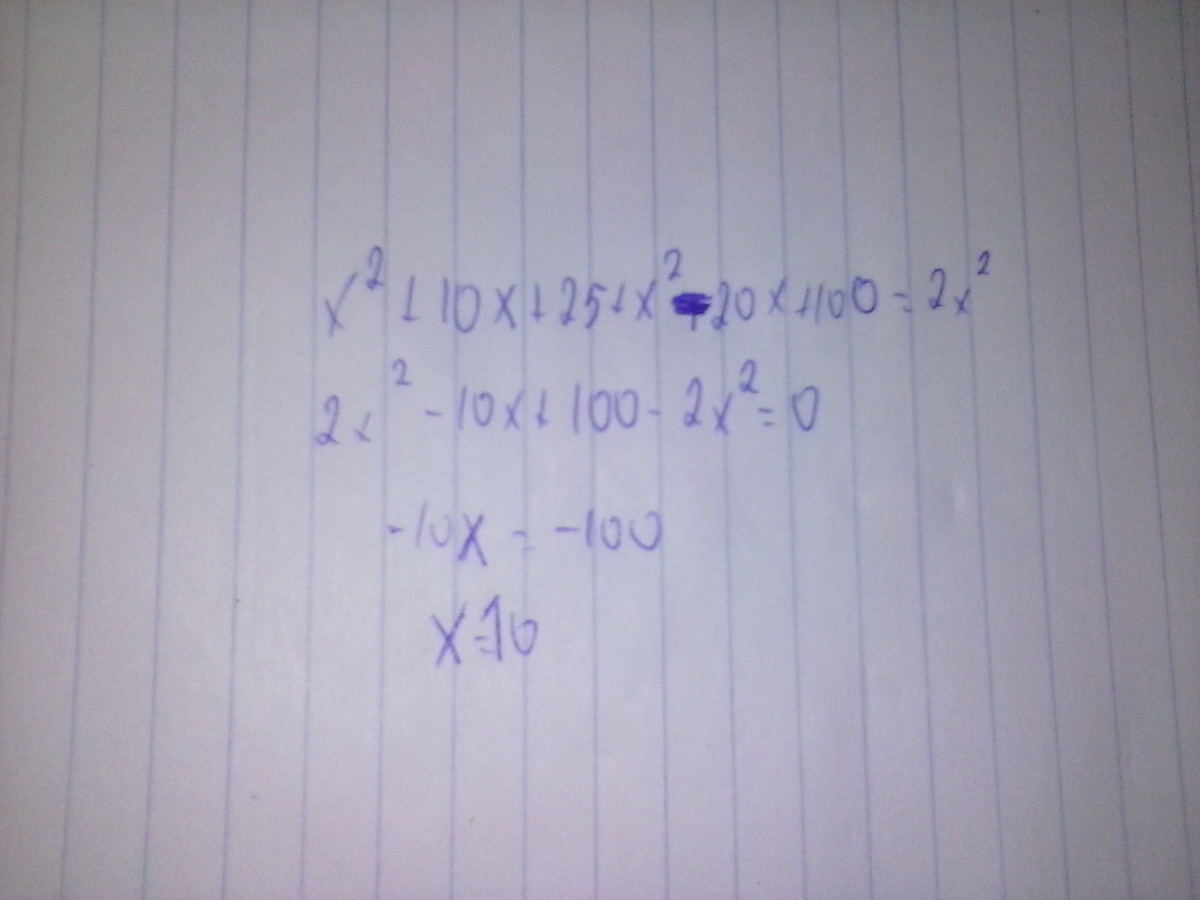 x² + 10x + 25 + x² - 20x + 100 = 2x²
2x² - 10x + 100 - 2x² = 0
-10x = -100
x = 10